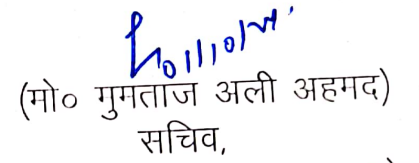 (मो० गुमताज अली अहमद)
सचिव,